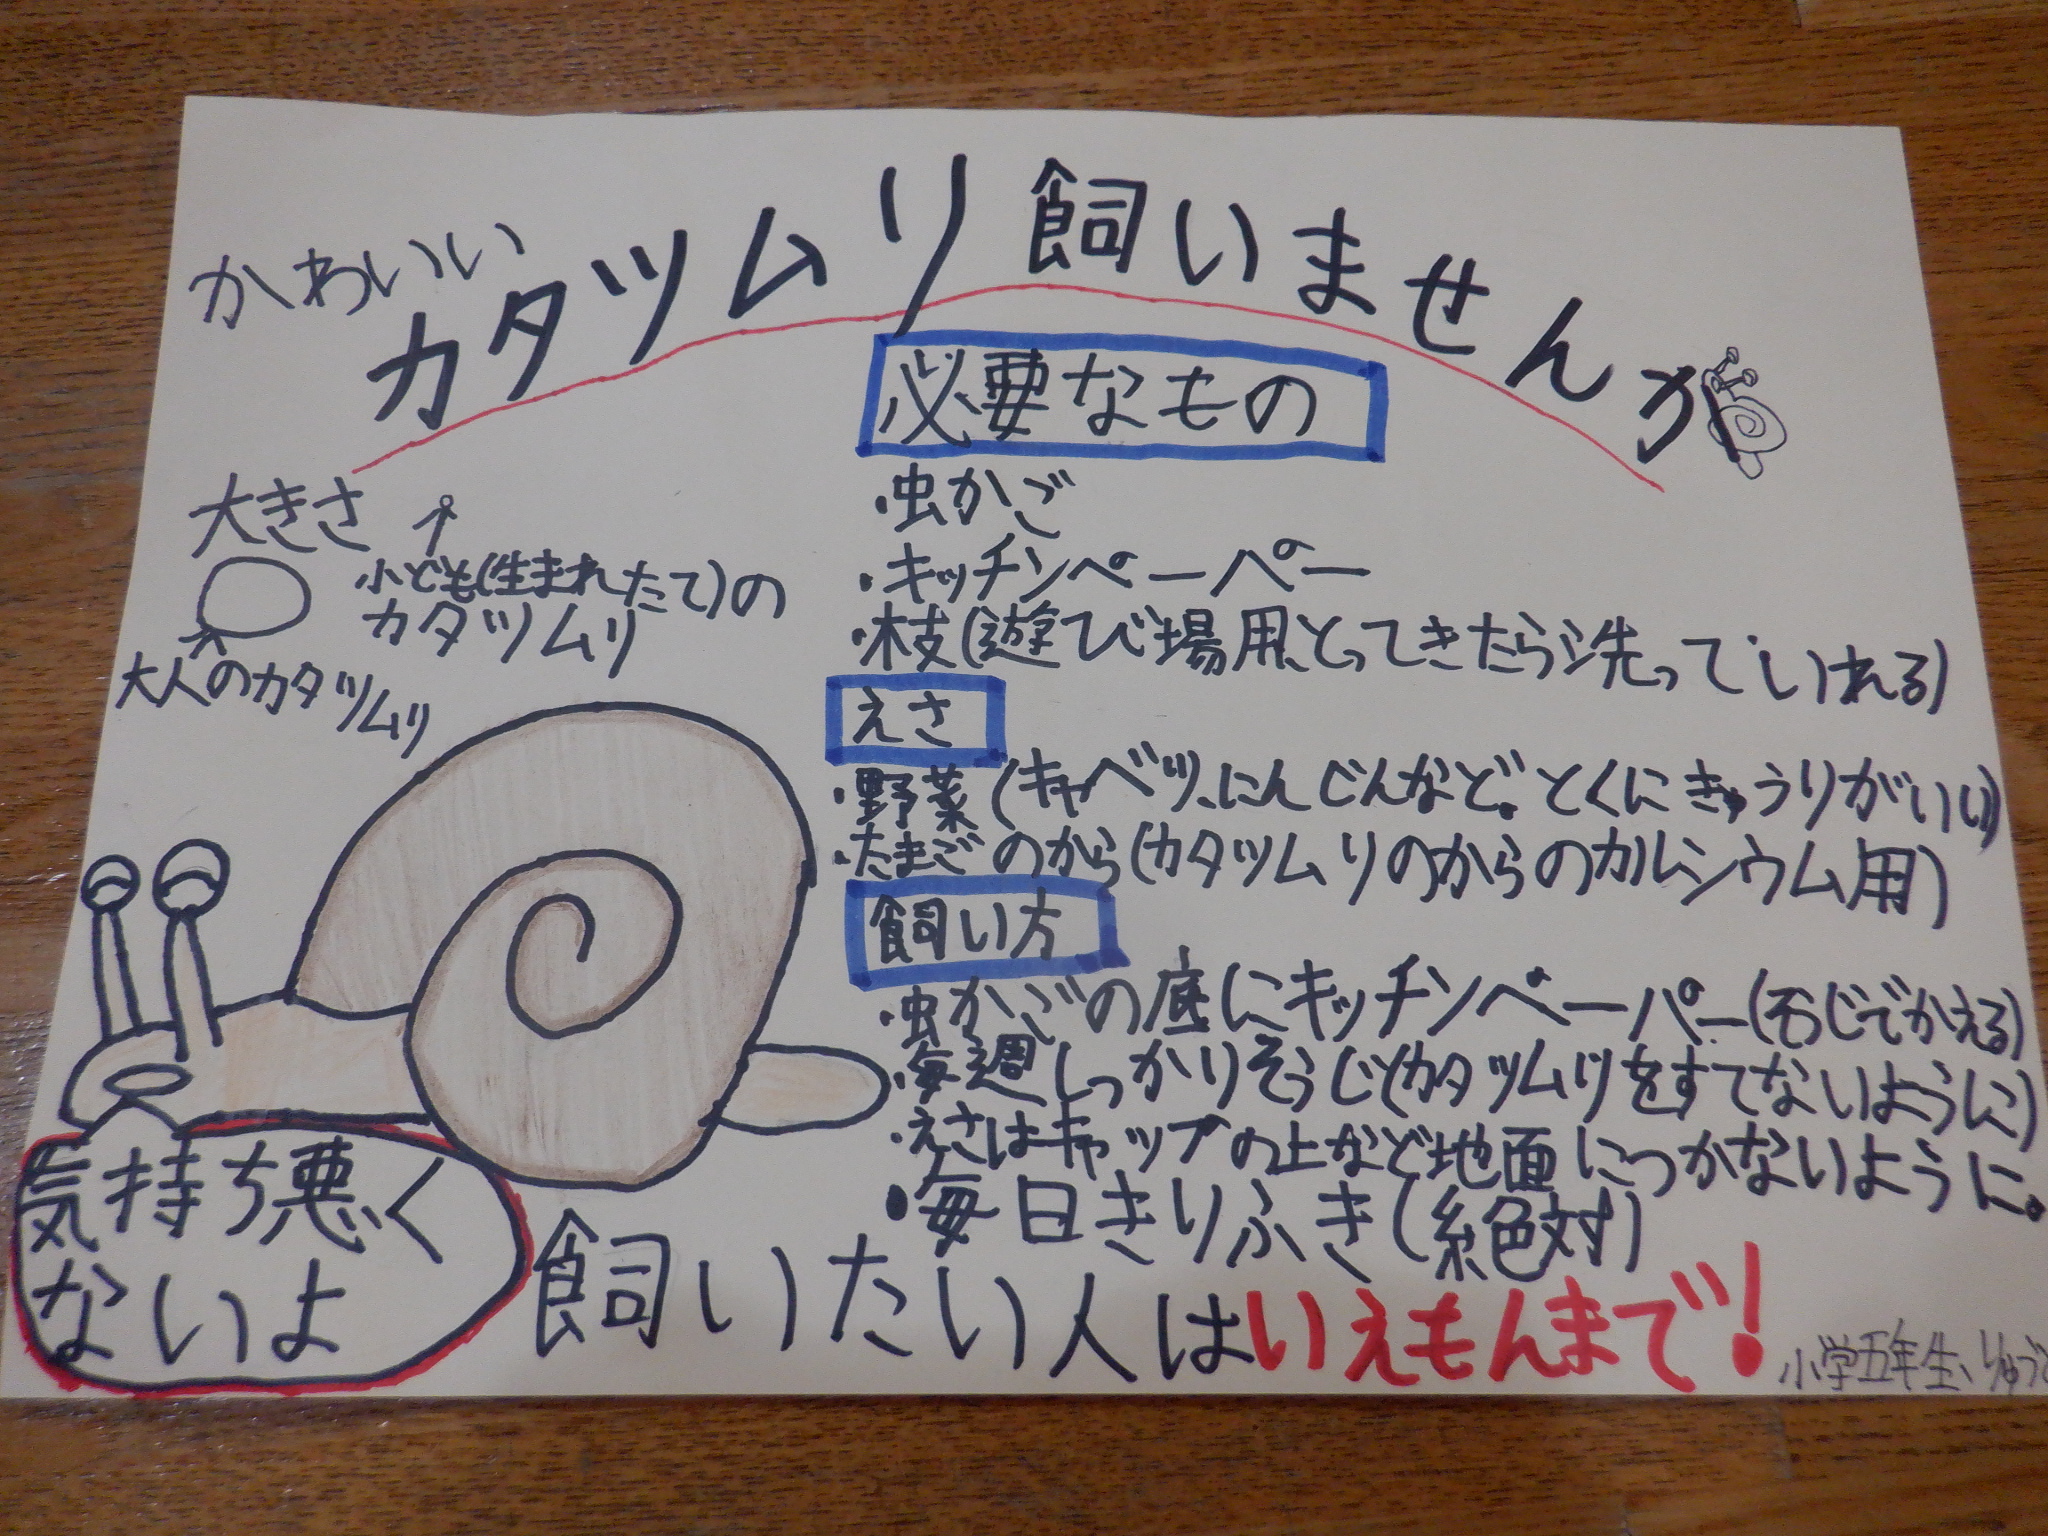 かわいい
カタツムリ飼いませんか
大きさ
小ども(生まれたて)の
カタツムリ
大人のカタツムリ
必要なもの
・虫かご
・キッチンペーパー
・枝(遊び場用、とってきたら洗っていれる)
えさ
・野菜(キャベツ、にんじんなど。とくにきゅうりがいい)
・たまごのから(カタツムリのからのカルシウム用)
飼い方
・虫かごの底にキッチンペーパー(そうじでかえる)
・毎週しっかりそうじ(カタツムリをすてないように)
・えさはキャップの上など地面につかないように。
・毎日きりふき(絶対)
気持ち悪く
ないよ
飼いたい人はいえもんまで!
小学五年生、りゅうと